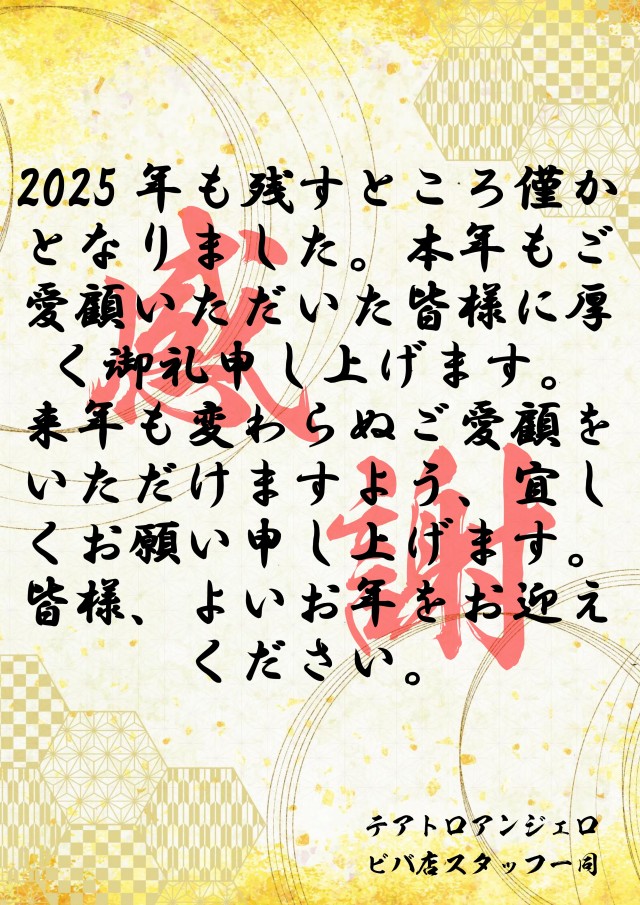 2025年も残すところ僅か
となりました。本年もご
愛顧いただいた皆様に厚
く御礼申し上げます。
来年も変わらぬご愛顧を
いただけますよう、宜し
くお願い申し上げます。
皆様、よいお年をお迎え
ください。
感
謝
テアトロアンジェロ
ビバ店スタッフ一同